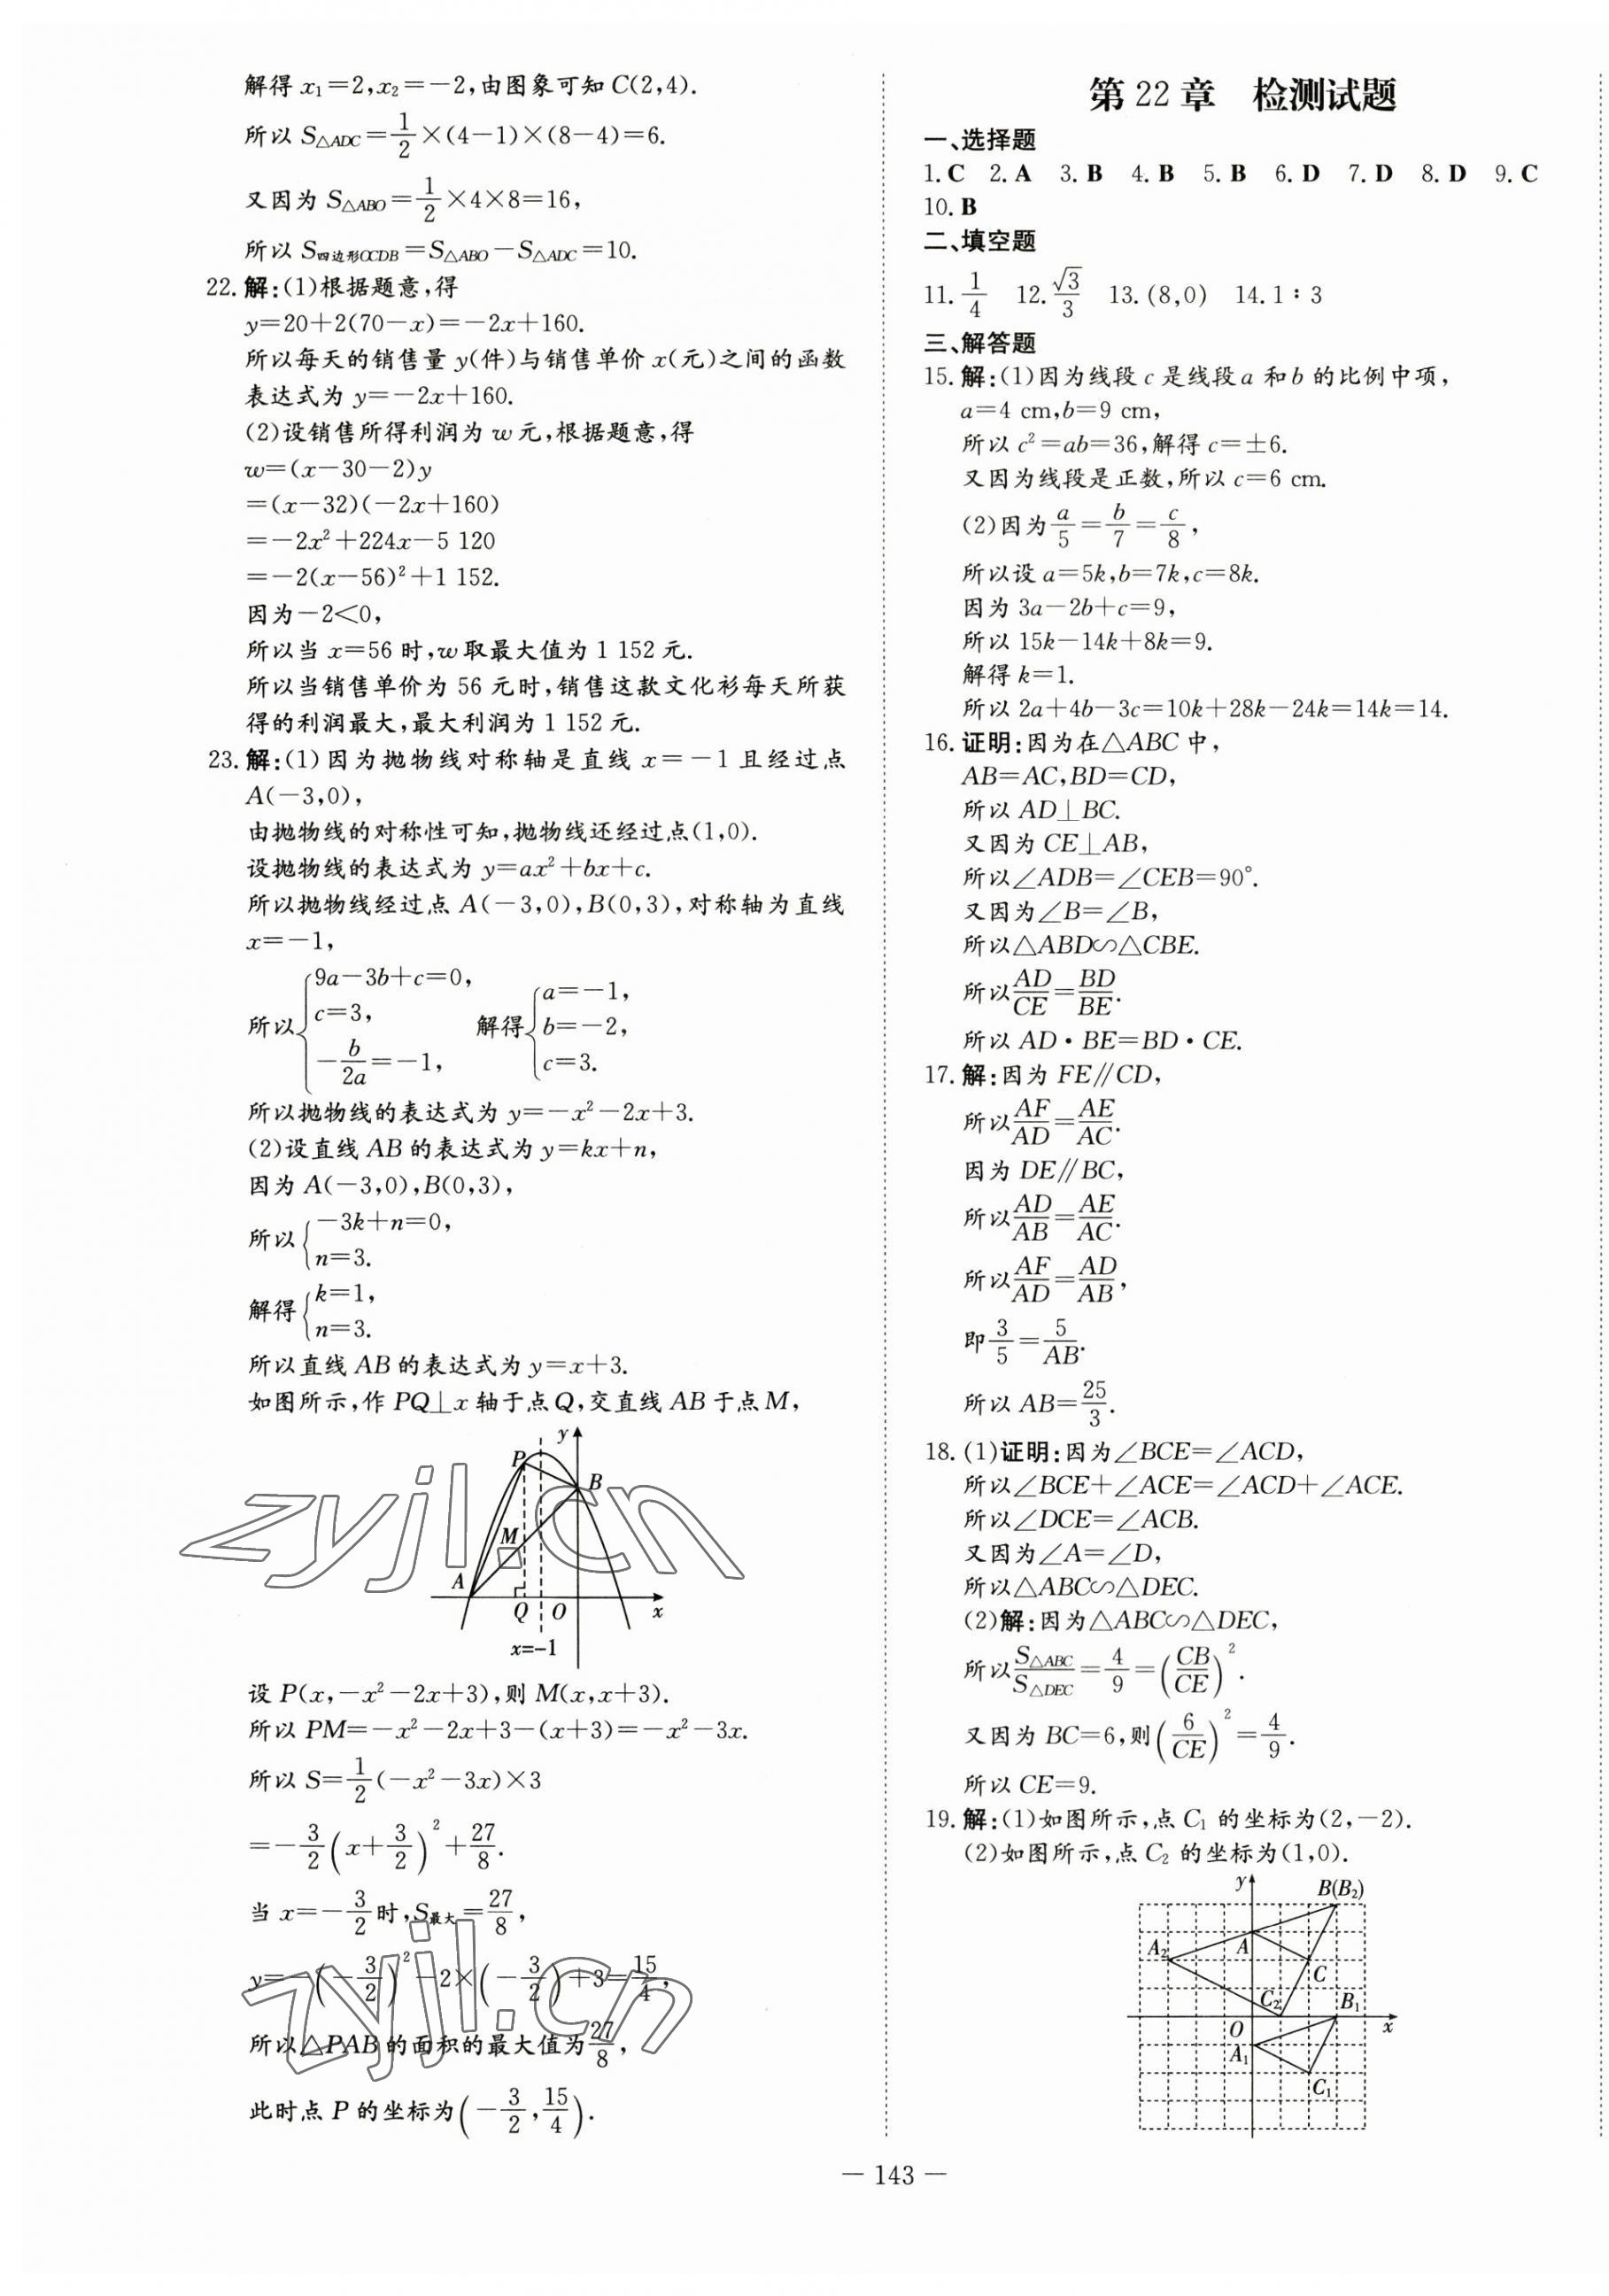 解得 x₁=2,x₂=-2,由图象可知 C(2,4).
所以 S△ADC=1/2×(4-1)×(8-4)=6.
又因为 S△ABO=1/2×4×8=16,
所以 S四边形OCDB=S△ABO-S△ADC=10.
22. 解:(1)根据题意,得
y=20+2(70-x)=-2x+160.
所以每天的销售量 y(件)与销售单价 x(元)之间的函数
表达式为 y=-2x+160.
(2)设销售所得利润为 w 元,根据题意,得
w=(x-30-2)y
=(x-32)(-2x+160)
=-2x²+224x-5 120
=-2(x-56)²+1 152.
因为-2<0,
所以当 x=56 时,w 取最大值为 1 152 元.
所以当销售单价为 56 元时,销售这款文化衫每天所获
得的利润最大,最大利润为 1 152 元.
23. 解:(1)因为抛物线对称轴是直线 x=-1 且经过点
A(-3,0),
由抛物线的对称性可知,抛物线还经过点(1,0).
设抛物线的表达式为 y=ax²+bx+c.
所以抛物线经过点 A(-3,0),B(0,3),对称轴为直线
x=-1,
所以{9a-3b+c=0, c=3, -b/2a=-1, 解得{a=-1, b=-2, c=3.
所以抛物线的表达式为 y=-x²-2x+3.
(2)设直线 AB 的表达式为 y=kx+n,
因为 A(-3,0),B(0,3),
所以{-3k+n=0, n=3.
解得{k=1, n=3.
所以直线 AB 的表达式为 y=x+3.
如图所示,作 PQ⊥x 轴于点 Q,交直线 AB 于点 M,
y
P
B
M
A
Q
O
x
x=-1
zyjl.cn
设 P(x,-x²-2x+3),则 M(x,x+3).
所以 PM=-x²-2x+3-(x+3)=-x²-3x.
所以 S=1/2(-x²-3x)×3
=-3/2(x+3/2)²+27/8.
当 x=-3/2时,S最大=27/8,
y=-(-3/2)²-2×(-3/2)+3=15/4,
zyjl.cn
所以△PAB 的面积的最大值为27/8,
此时点 P 的坐标为(-3/2,15/4).
第 22 章 检测试题
一、选择题
1. C 2. A 3. B 4. B 5. B 6. D 7. D 8. D 9. C
10. B
二、填空题
11. 1/4 12. √3/3 13. (8,0) 14. 1∶3
三、解答题
15. 解:(1)因为线段 c 是线段 a 和 b 的比例中项,
a=4 cm,b=9 cm,
所以 c²=ab=36,解得 c=±6.
又因为线段是正数,所以 c=6 cm.
(2)因为a/5=b/7=c/8,
所以设 a=5k,b=7k,c=8k.
因为 3a-2b+c=9,
所以 15k-14k+8k=9.
解得 k=1.
所以 2a+4b-3c=10k+28k-24k=14k=14.
16. 证明:因为在△ABC 中,
AB=AC,BD=CD,
所以 AD⊥BC.
又因为 CE⊥AB,
所以∠ADB=∠CEB=90°.
又因为∠B=∠B,
所以△ABD∽△CBE.
所以AD/CE=BD/BE.
所以 AD·BE=BD·CE.
17. 解:因为 FE∥CD,
所以AF/AD=AE/AC.
因为 DE∥BC,
所以AD/AB=AE/AC.
所以AF/AD=AD/AB,
即3/5=5/AB.
所以 AB=25/3.
18. (1)证明:因为∠BCE=∠ACD,
所以∠BCE+∠ACE=∠ACD+∠ACE.
所以∠DCE=∠ACB.
又因为∠A=∠D,
所以△ABC∽△DEC.
(2)解:因为△ABC∽△DEC,
所以S△ABC/S△DEC=4/9=(CB/CE)².
又因为 BC=6,则(6/CE)²=4/9.
所以 CE=9.
19. 解:(1)如图所示,点 C₁ 的坐标为(2,-2).
(2)如图所示,点 C₂ 的坐标为(1,0).
y
B(B₂)
A₂
A
C
C₂
B₁
O
x
A₁
C₁
— 143 —